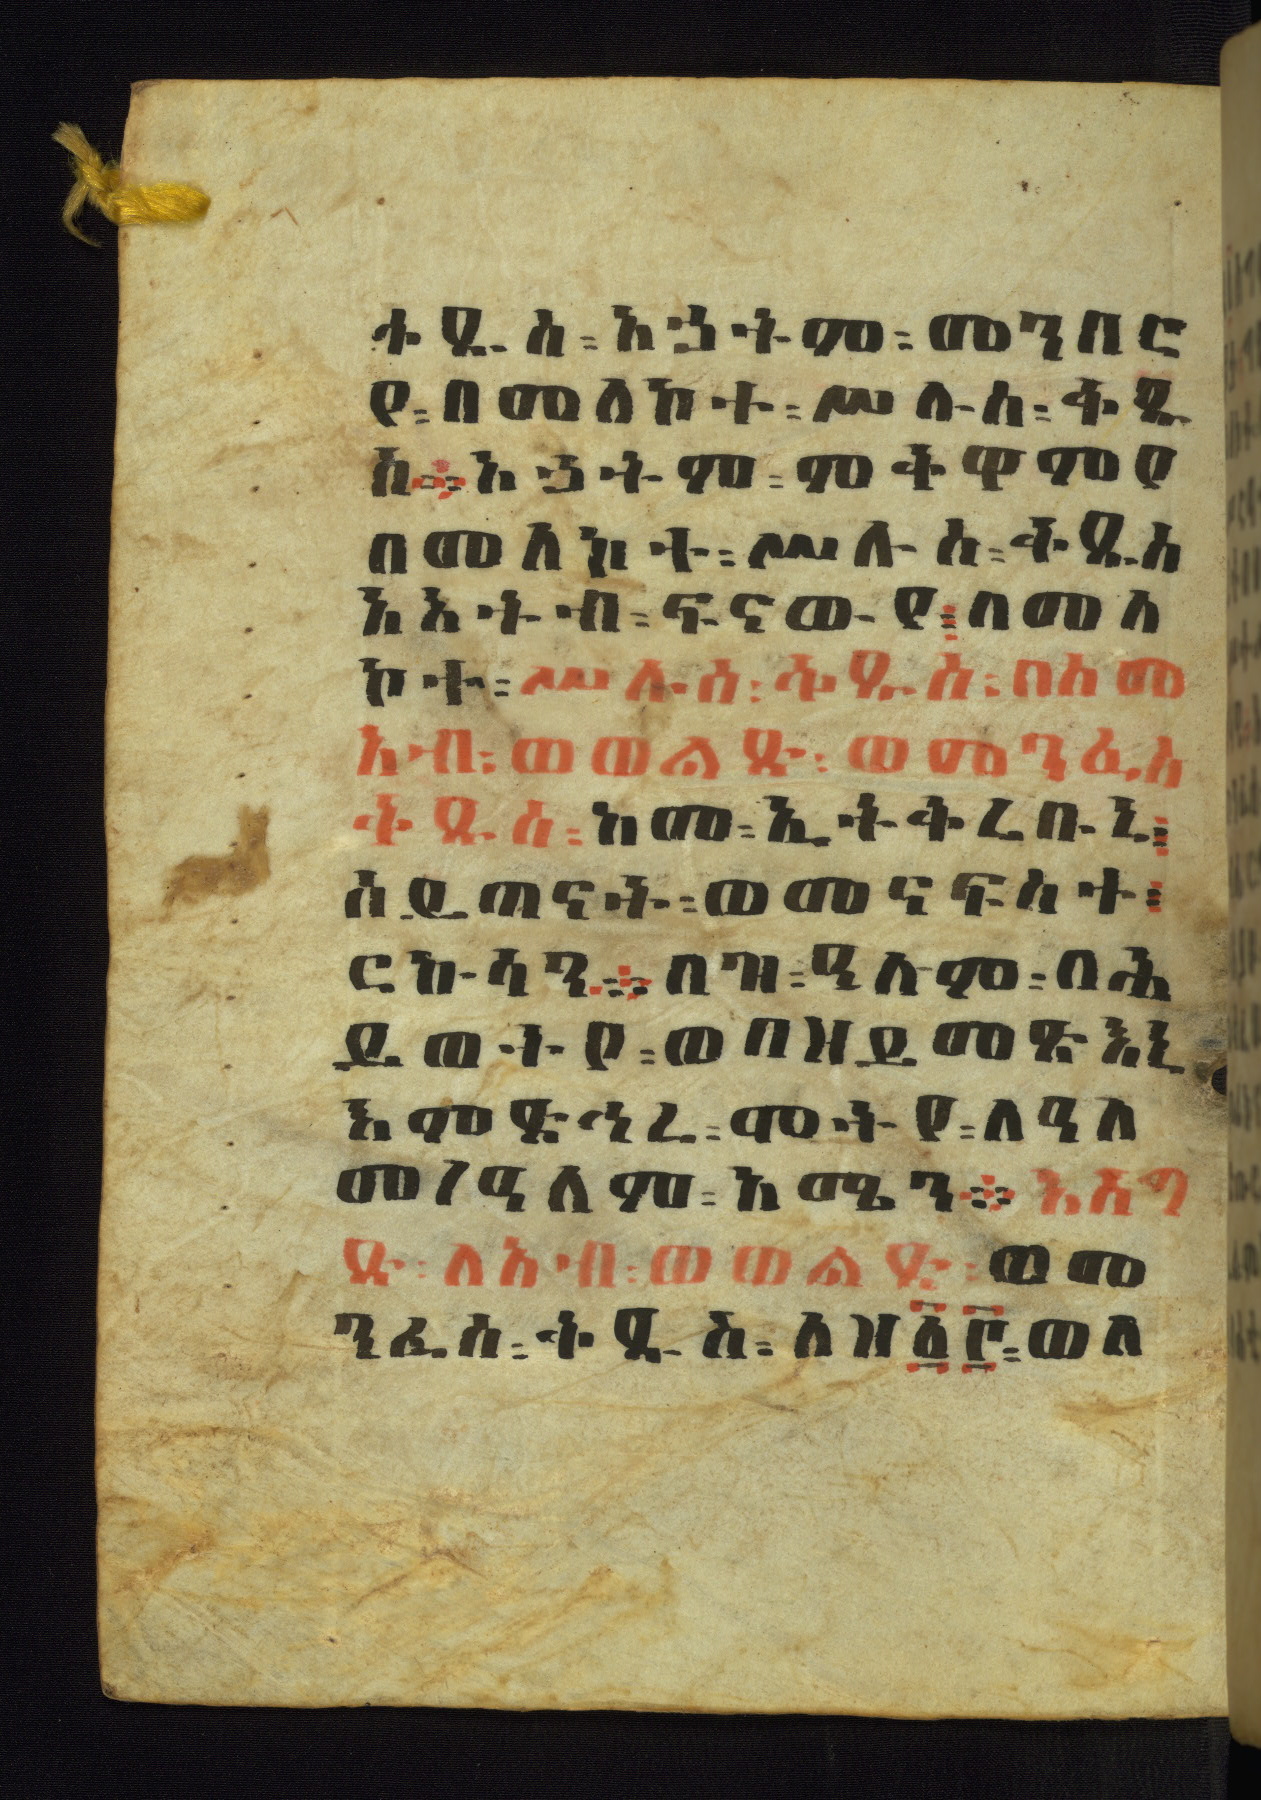 ቱዱስ፡አኃትም፡መንበር
የ፡በመለኮት፡ሥሉስ፡ቅዱ
ስ፨አኃትም፡ምቅዋምየ
በመለኮት፡ሥሉስ፡ቅዱስ
እአትብ፡ፍናውየ፡በመለ
ኮት፡ሥሉስ፡ቅዱስ፡በስመ
አብ፡ወወልድ፡ወመንፈስ
ቅዱስ፡ከመ፡ኢትቅረቡኒ፡
ሰይጣናት፡ወመናፍስት፡
ርኩሳን፨በዝ፡ዓለም፡በሕ
ይወትየ፡ወበዝይመጽእኒ
እምድኅረ፡ሞትየ፡ለዓለ
መ፡ዓለም፡አሜን፨እሰግ
ድ፡ለአብ፡ወወልድ፡ወመ
ንፈስ፡ቅዱስ፡ለዝ፩፫፡ወለ